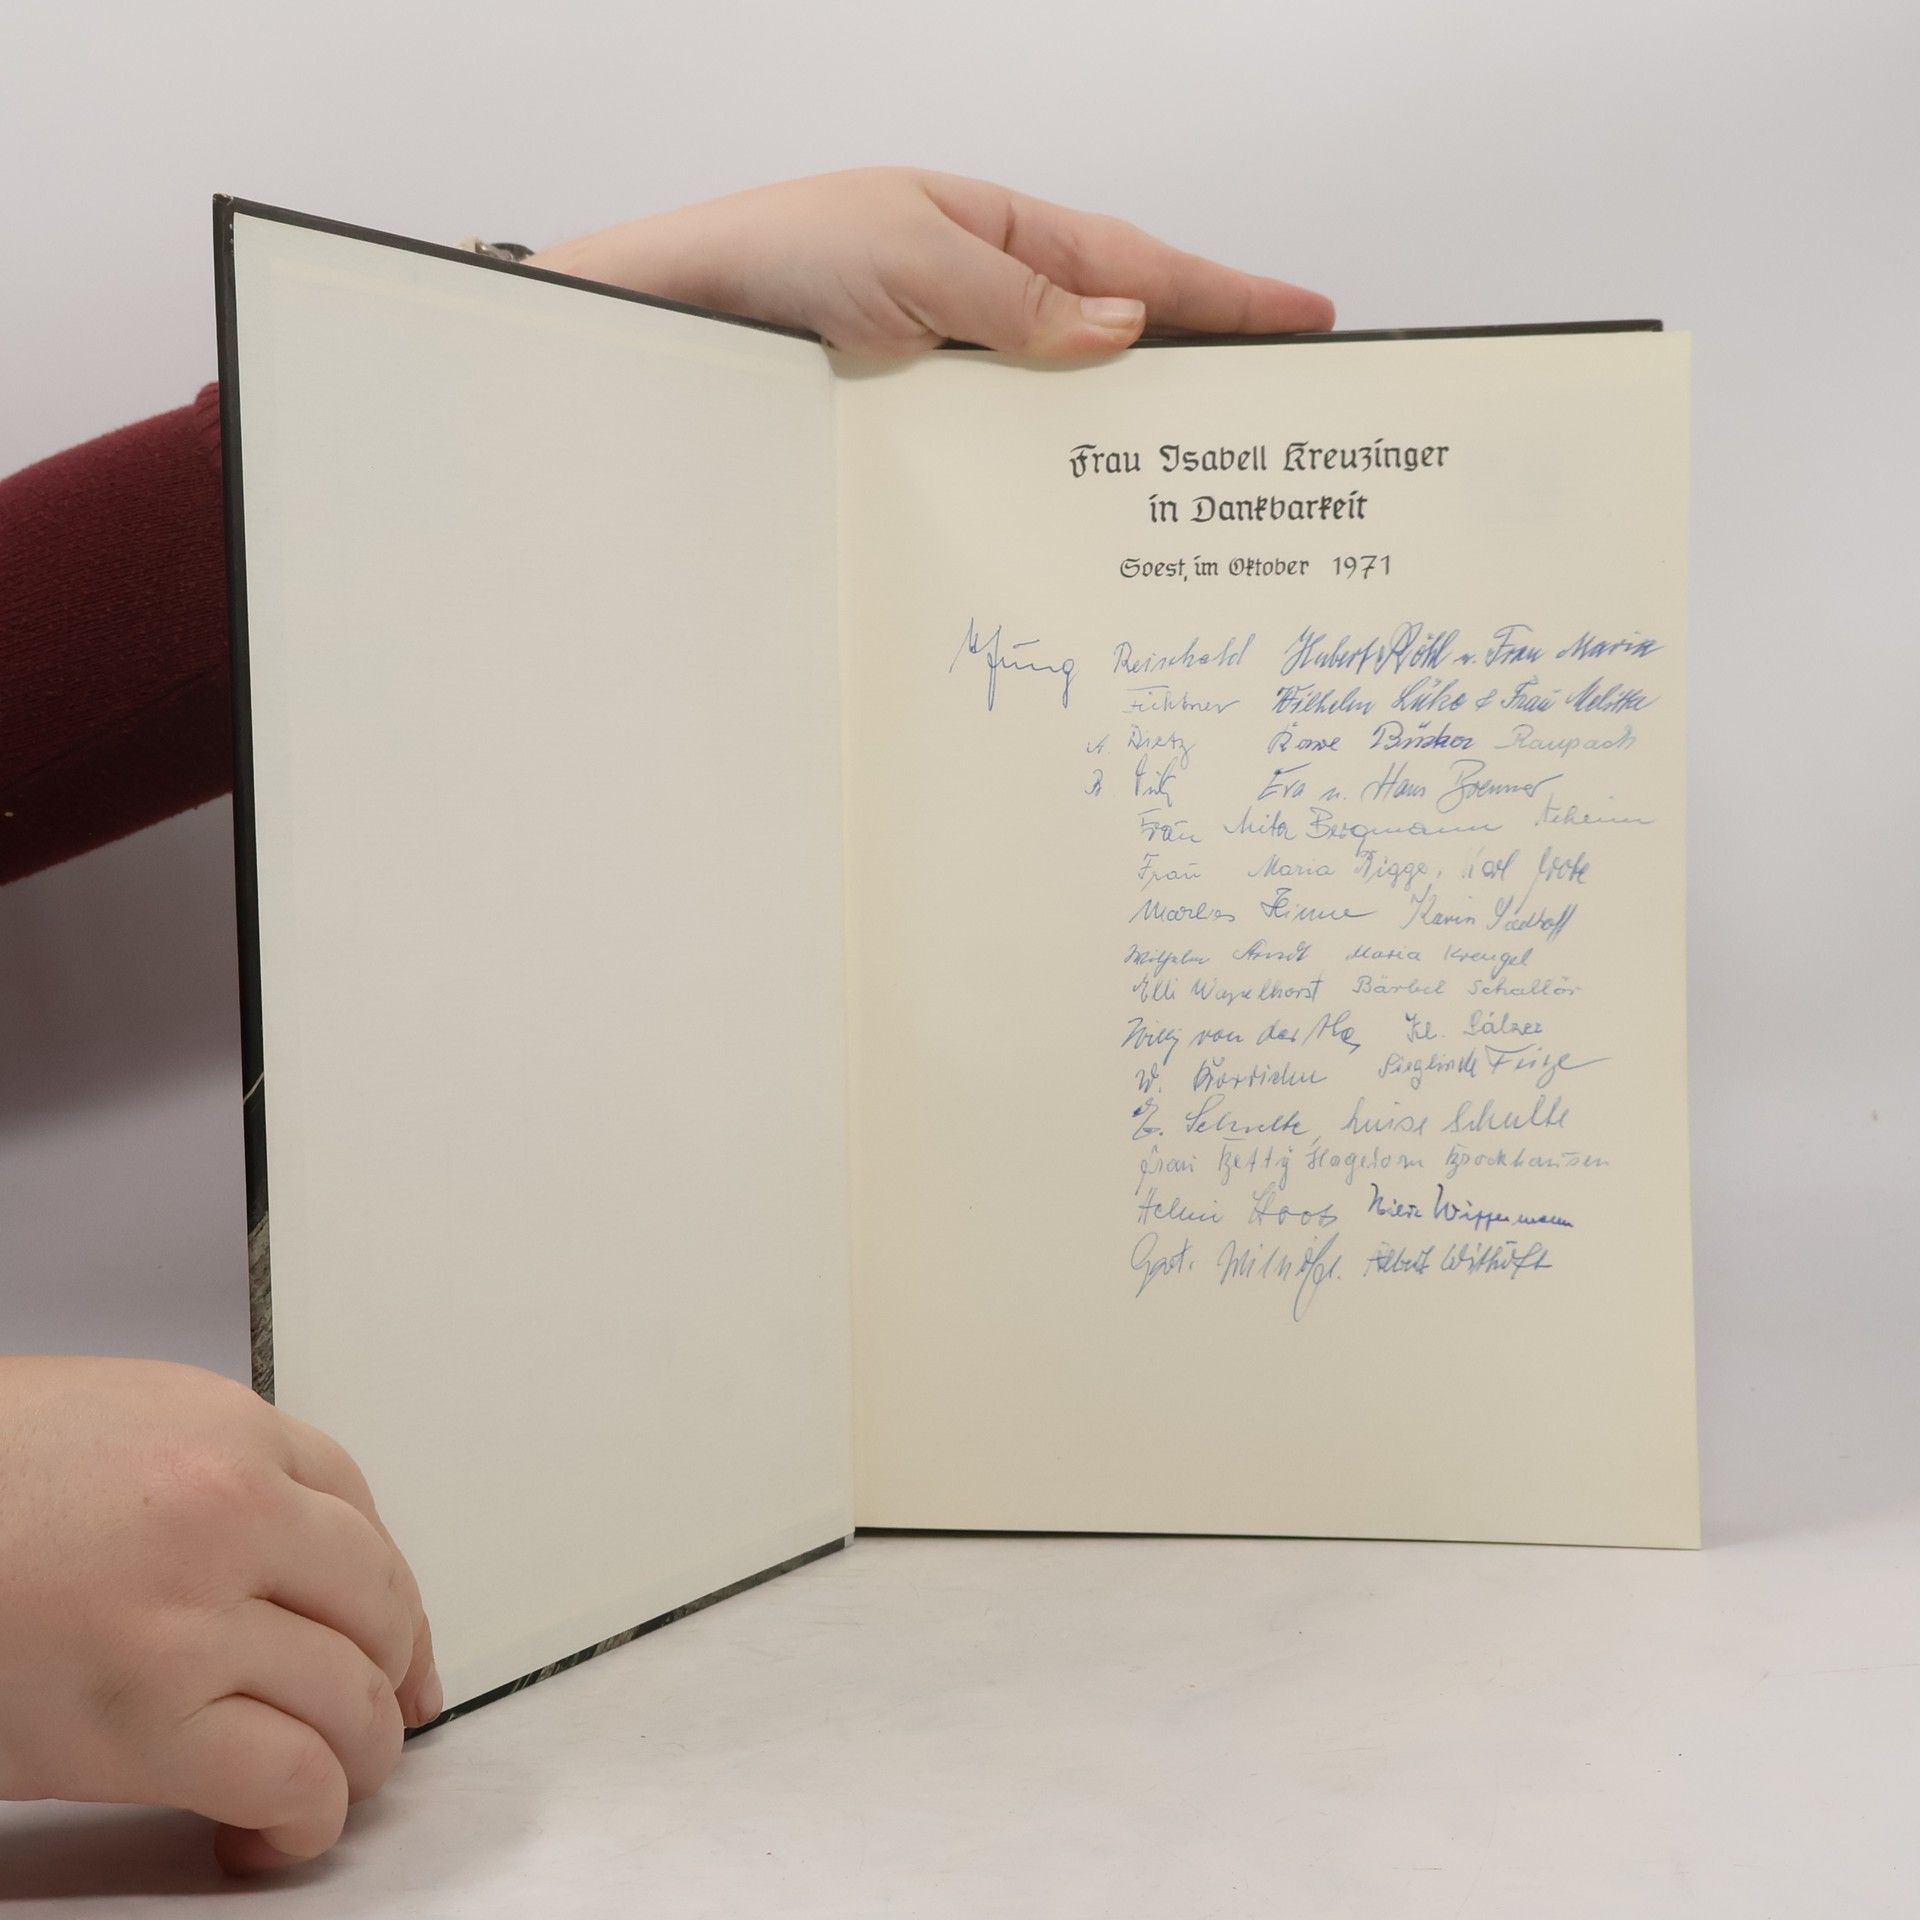 Frau Isabell Kreuzinger
in Dankbarkeit
Soest, im Oktober 1971
Reinhold Hubert Röhl u. Frau Maria
Wilhelm Lüke & Frau Melitta
A. Dietz Büsker Raupach
Eva u. Hans Brenner
Frau Mita Bergmann Neheim
Frau Maria Rigge, Karl Grote
Marlies Hinne Karin
Wilhelm Arndt Maria Krengel
Elli Wapelhorst Bärbel Schallör
Willy von der Kl. Sälzer
W. Sieglinde
E. Schulte, Luise Schulte
Frau Betty Hagedorn Brockhausen
Helmi Wippermann
Albert Withöft